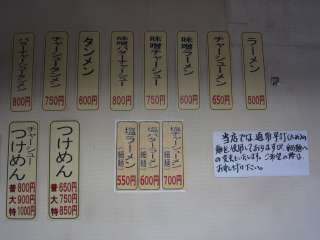 ラーメン
500円
チャーシューメン
650円
味噌ラーメン
600円
味噌チャーシューメン
700円
味噌バターチャーシュー
800円
タンメン
600円
チャーシュータンメン
750円
バターチャーシューメン
800円
塩チャーシューメン
細麺
700円
塩バターラーメン
細麺
600円
塩ラーメン
細麺
550円
つけめん
普 650円
大 750円
特 850円
チャーシュー
つけめん
普 800円
大 900円
特 1000円
当店では通常平打
麺を使用しておりますが、細麺へ
の変更もいたします。ご希望の際は、
お申し付け下さい。